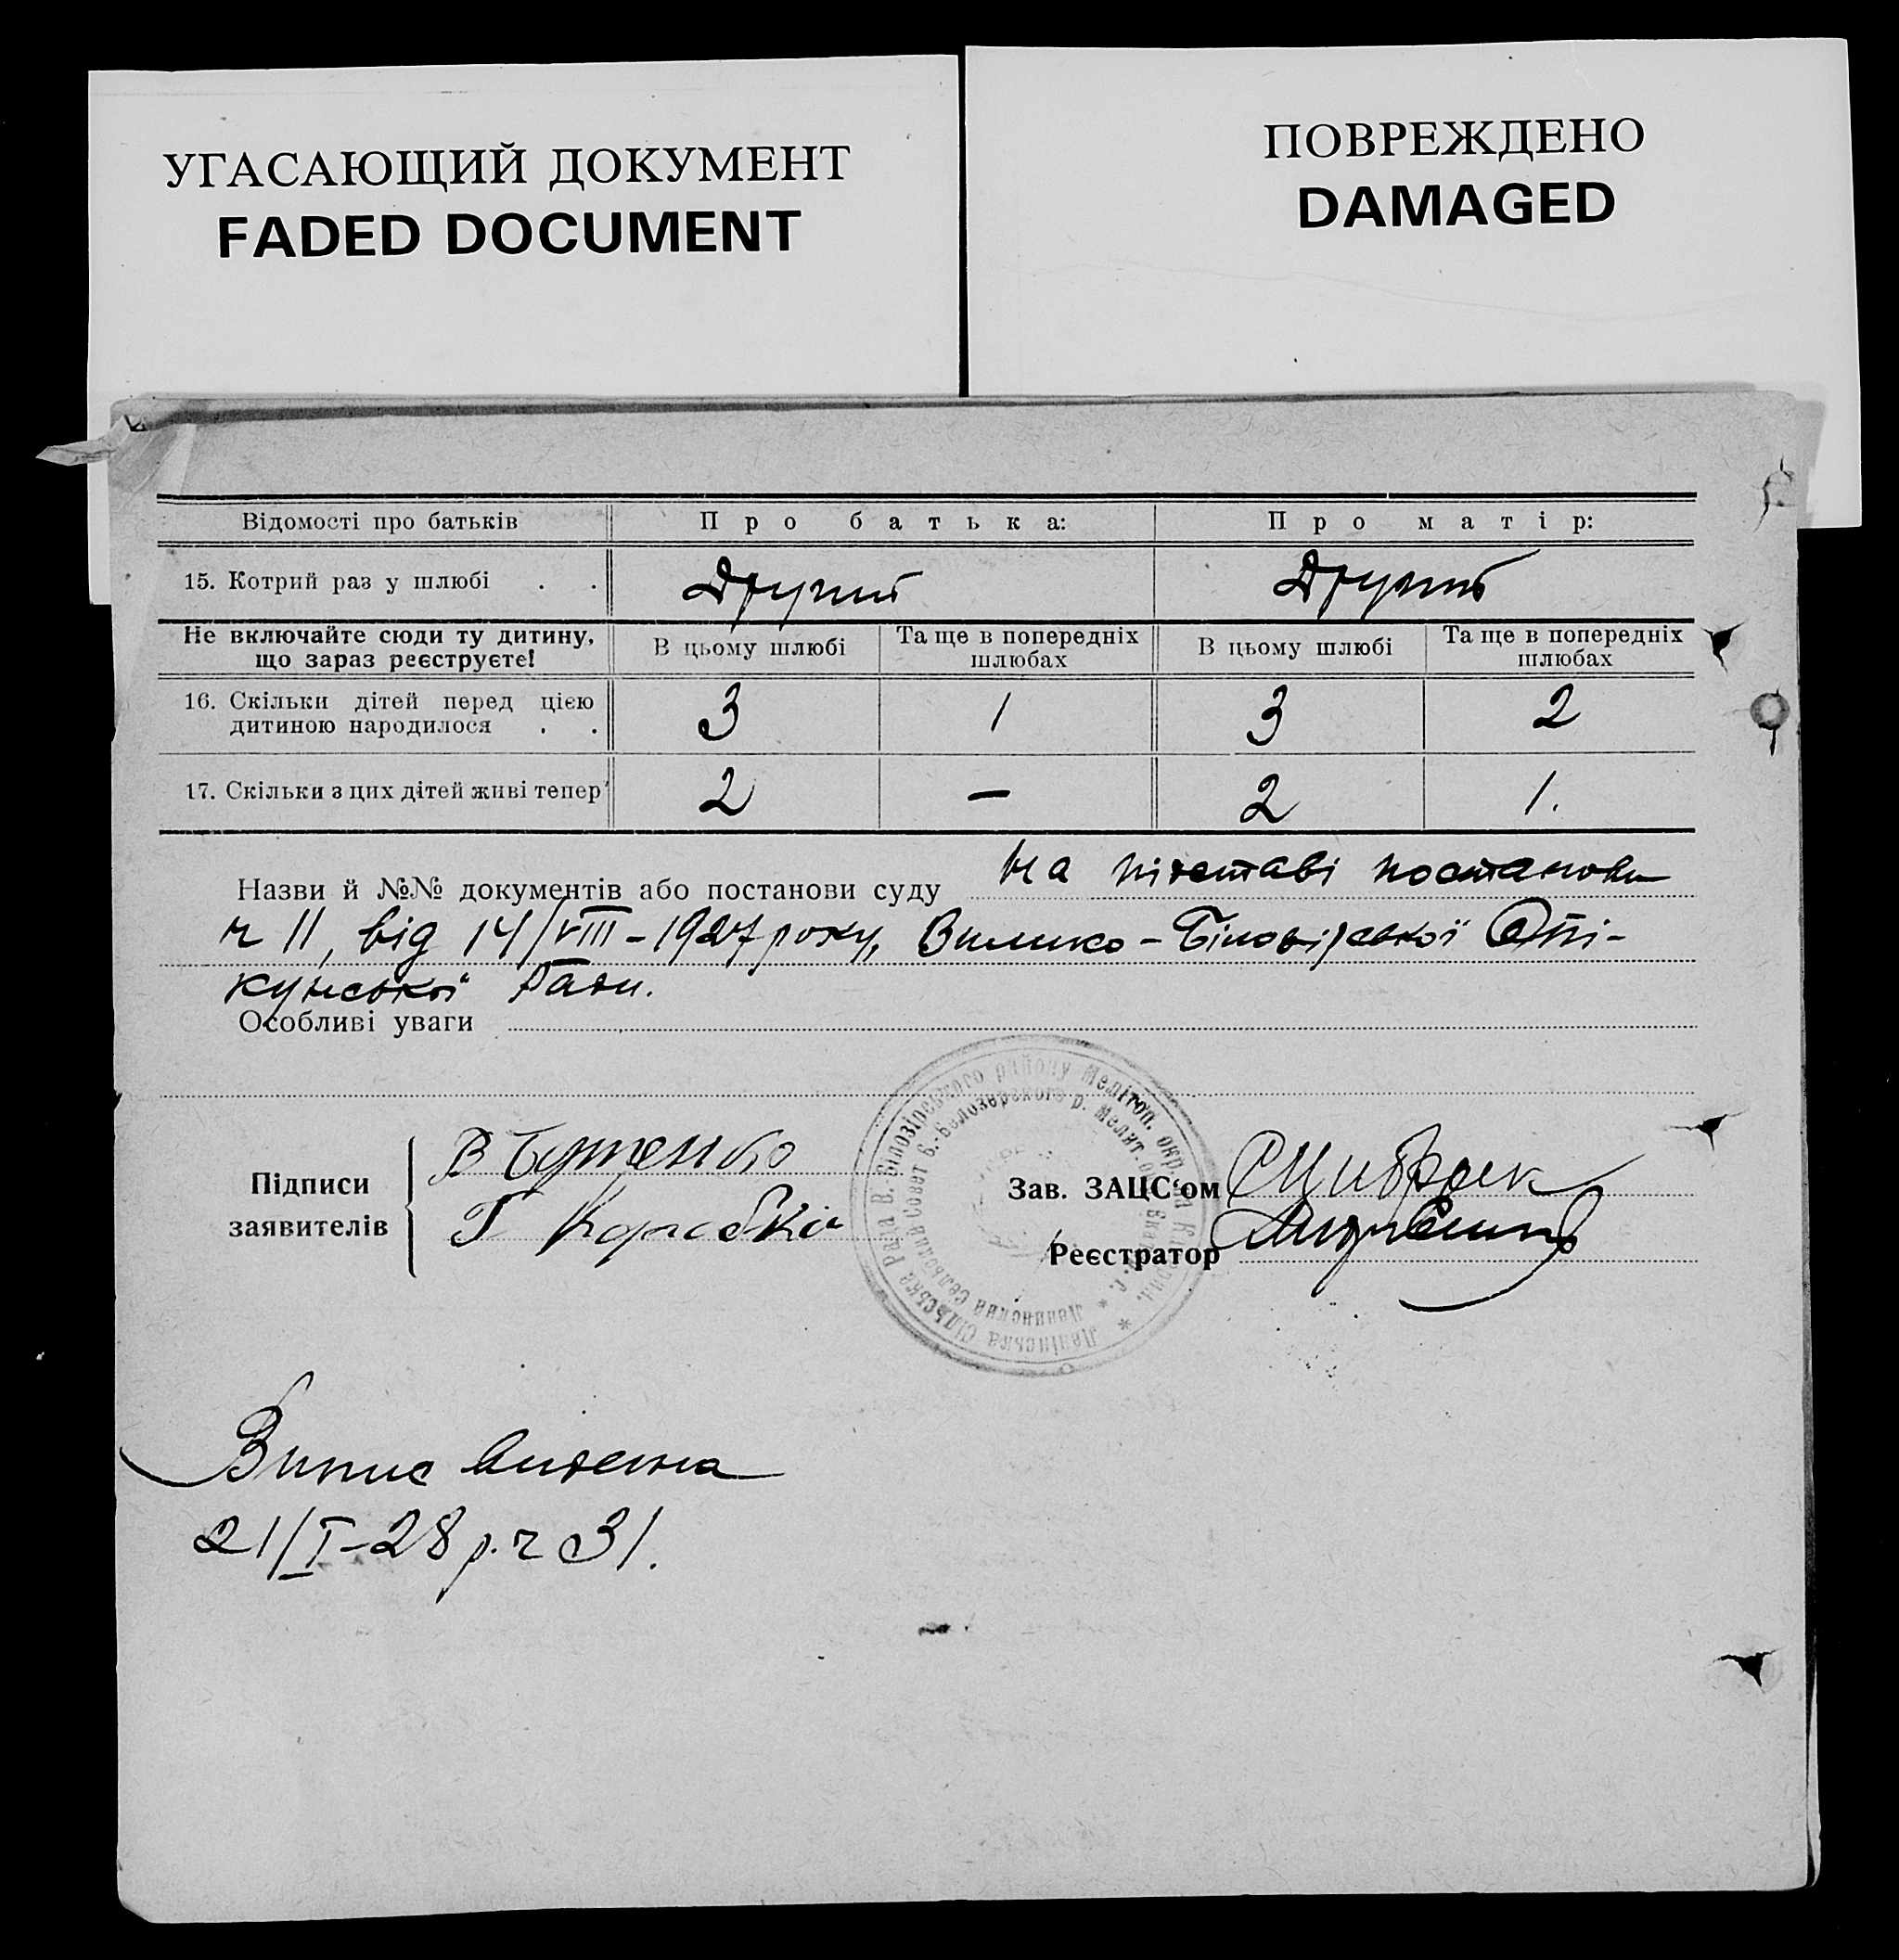 УГАСАЮЩИЙ ДОКУМЕНТ
FADED DOCUMENT
ПОВРЕЖДЕНО
DAMAGED
Відомості про батьків Про батька: Про матір:
15. Котрий раз у шлюбі . . Другий Другий
Не включайте сюди ту дитину, що зараз реєструєте! В цьому шлюбі Та ще в попередніх шлюбах В цьому шлюбі Та ще в попередніх шлюбах
16. Скільки дітей перед цією
дитиною народилося . . 3 1 3 2
17. Скільки з цих дітей живі тепер 2 — 2 1.
Назви й №№ документів або постанови суду на підставі постанови
ч 11, від 14/VIII – 1927 року, Велико – Білозірської Опі-
кунської Ради.
Особливі уваги
Підписи
заявителів
В Бутенко
Г Коробка
Зав. ЗАЦС‘ом
Реєстратор
Ленінська Сільська Рада В.-Білозірського району Мелітоп. окр.
Ленинский Сельский Совет Б.-Белозерского р. Мелит.
Випис видана
21/I – 28 р. ч 31.